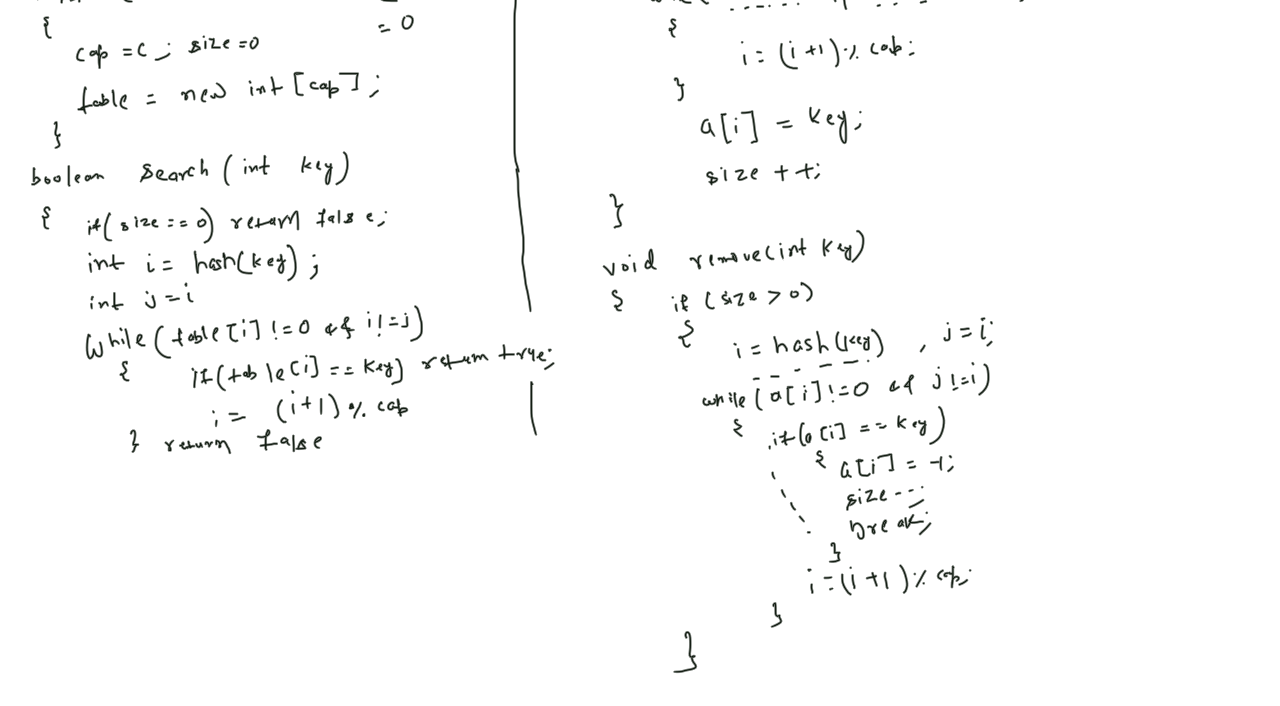 {
= 0
cap = c ; size = 0
table = new int [cap] ;
}
boolean search ( int key)
{ if( size == 0) return false;
int i = hash(key) ;
int j = i
while ( table [i] != 0 && i != j )
{ if( table [i] == key) return true;
i = (i+1) % cap
} return false
{
i = (i+1) % cap;
}
a[i] = key;
size ++;
}
void remove(int key)
{ if (size > 0)
{ i = hash(key) , j = i;
while ( a[i] != 0 && j != i)
{ if(a[i] == key)
{ a[i] = -1;
size --;
break;
}
i = (i+1) % cap;
}
}